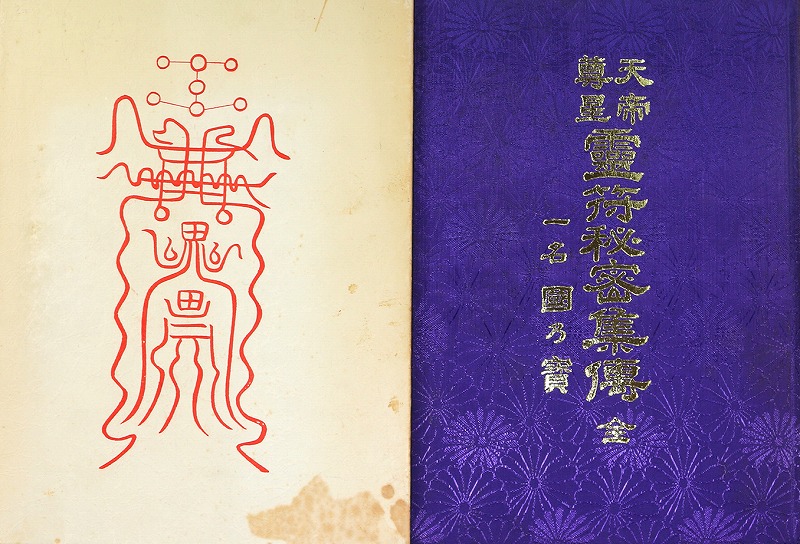 天帝
尊星
靈符秘密集傳 全
一名 國乃寶